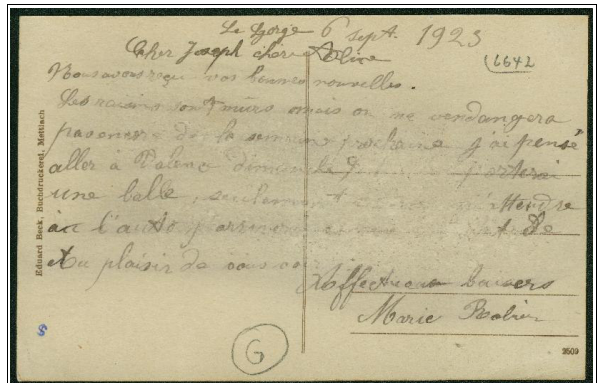 Le Gorge 6 sept. 1923
Cher Joseph chère Aline
(6642
Nous avons reçu vos bonnes nouvelles.
Les raisins sont mûrs mais on ne vendangera
pas encore de la semaine prochaine j'ai pensé
aller à dimanche porterai
une belle, seulement attendre
à l'auto j'arriverai de
Au plaisir de vous
Affectueux baisers
Marie
G
Eduard Beck, Buchdruckerei, Mettlach
2509